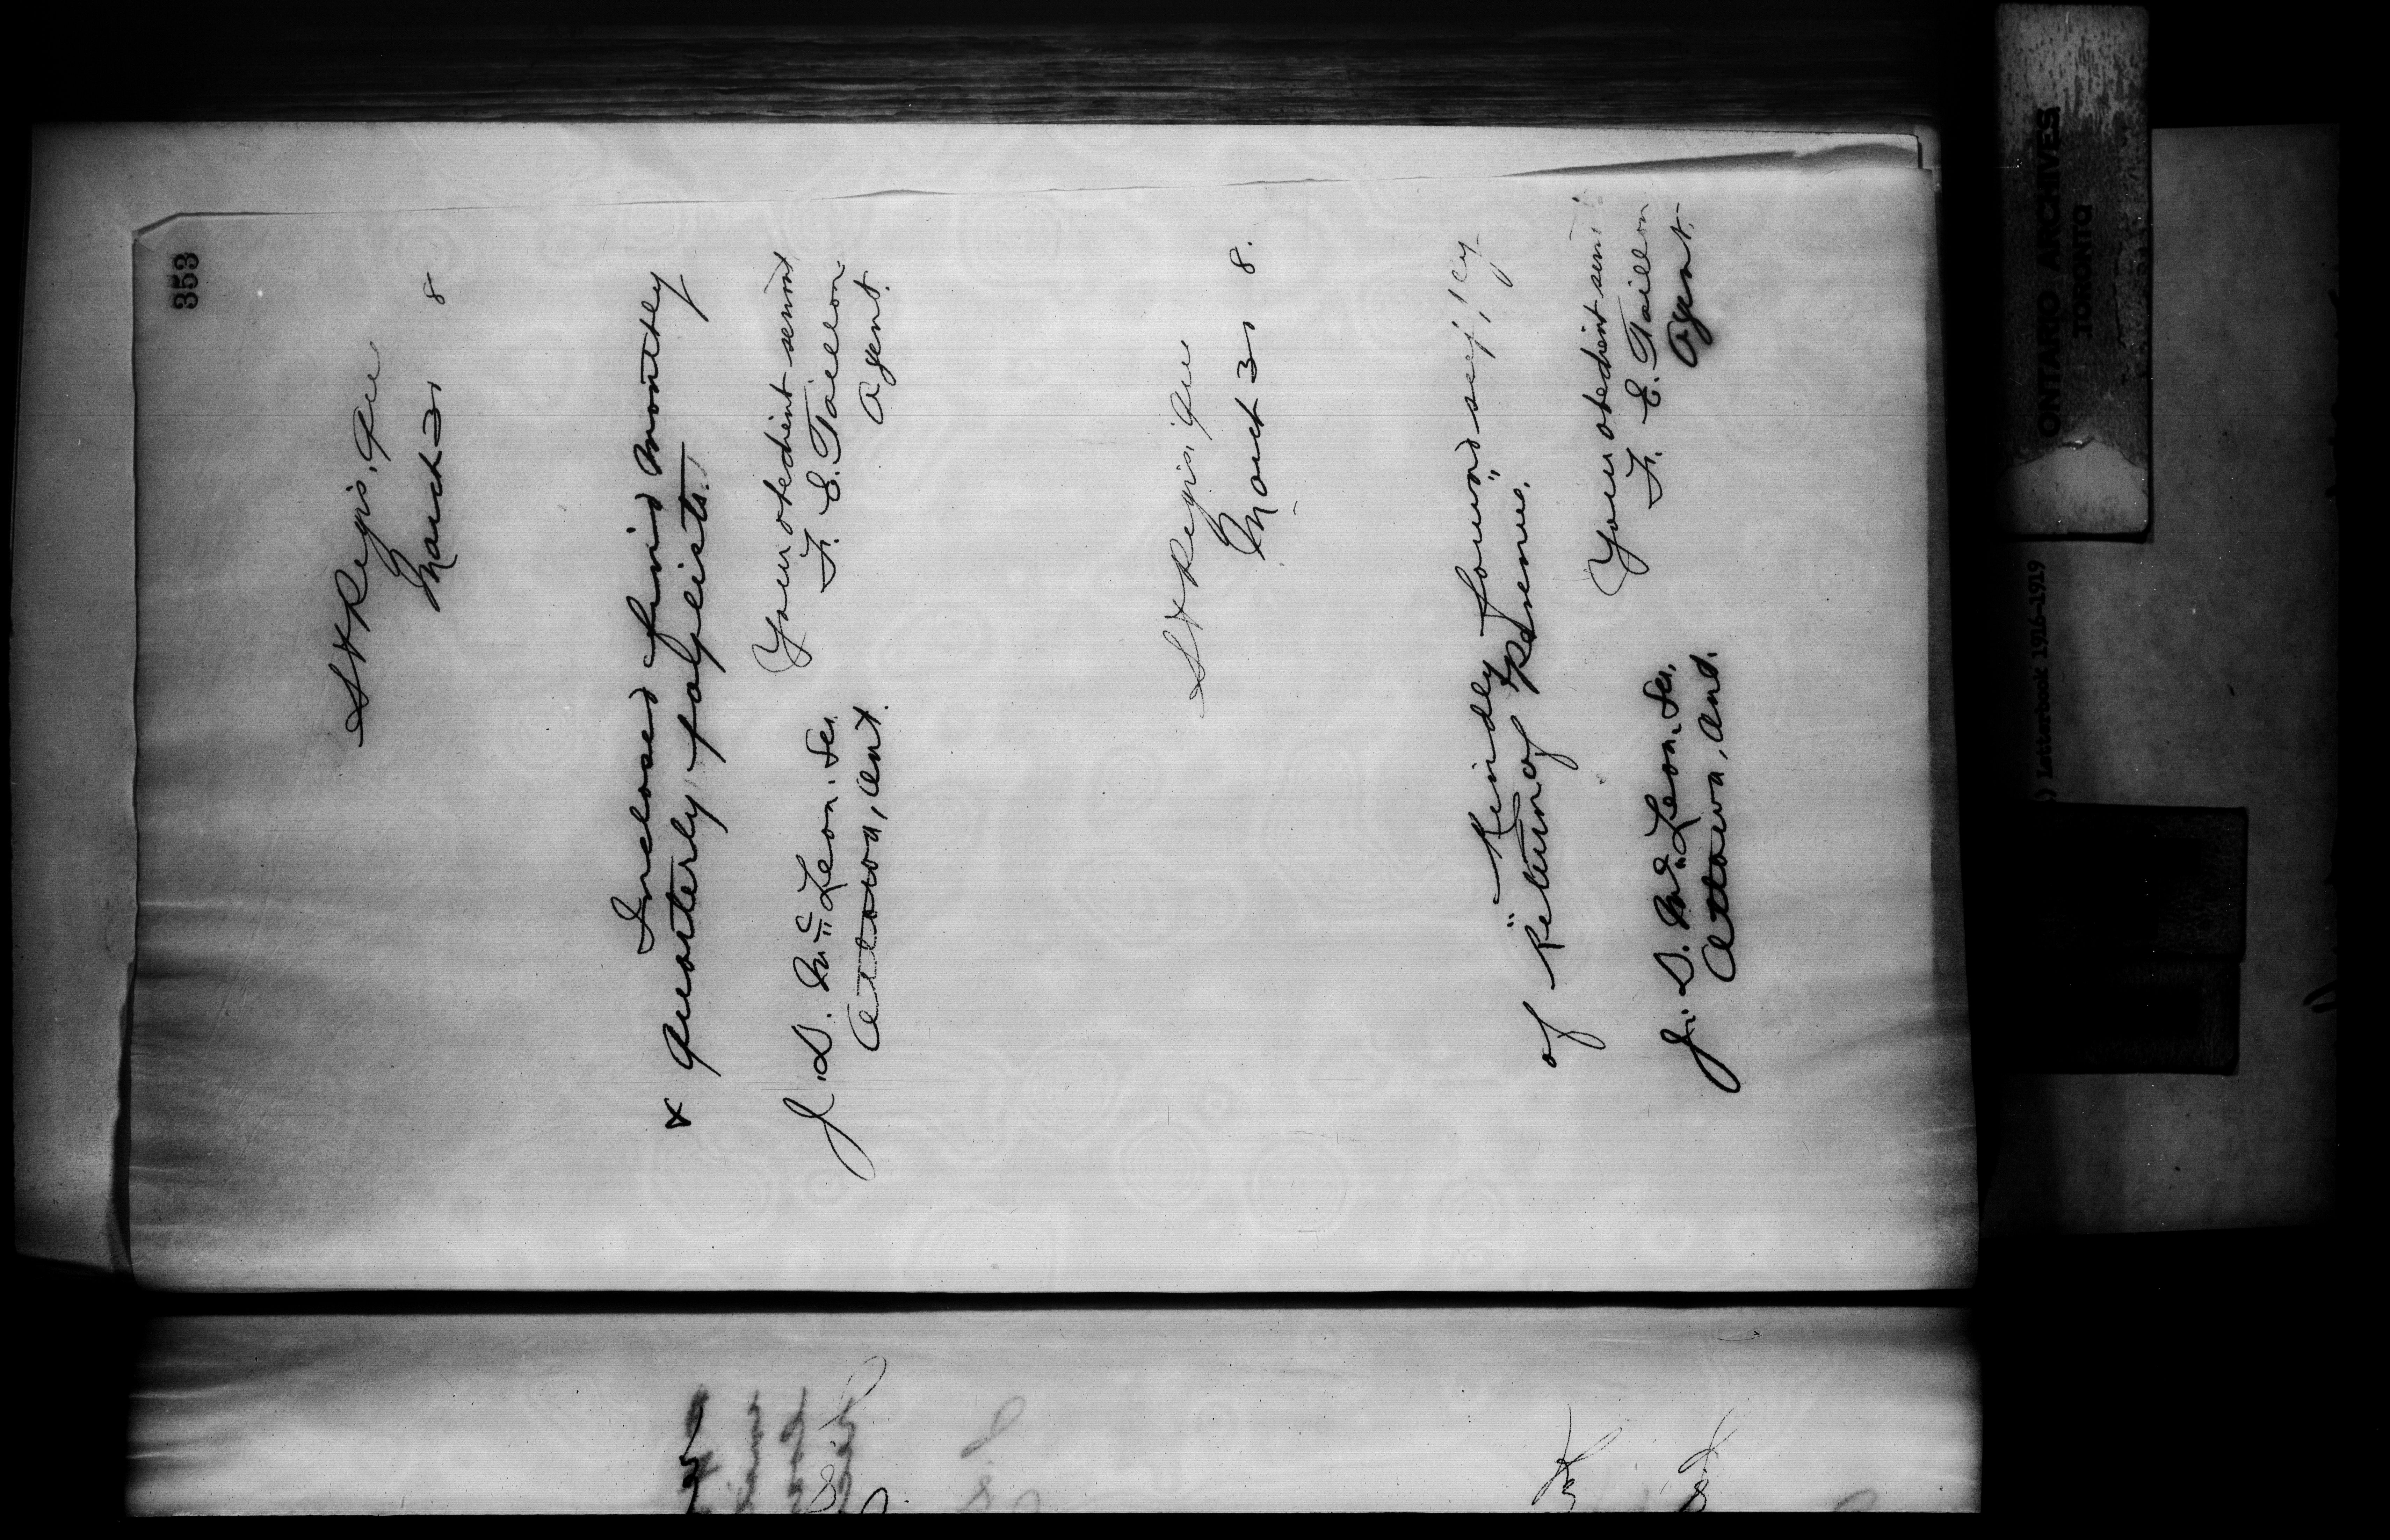 353
St Regis. Que
March 31 8
Inclosed find Monthly
& Quarterly paylists.
Your obedient servant
F. E. Taillon
Agent.
J. D. McLean. Sec.
Ottawa, Ont.
St Regis. Que
March 31 8.
Kindly forward supply
of "Return of Revenue".
Your obedient
F. E. Taillon
Agent.
J. D. McLean. Sec.
Ottawa, Ont.
ONTARIO ARCHIVES
TORONTO
) Letterbook 1916-1919